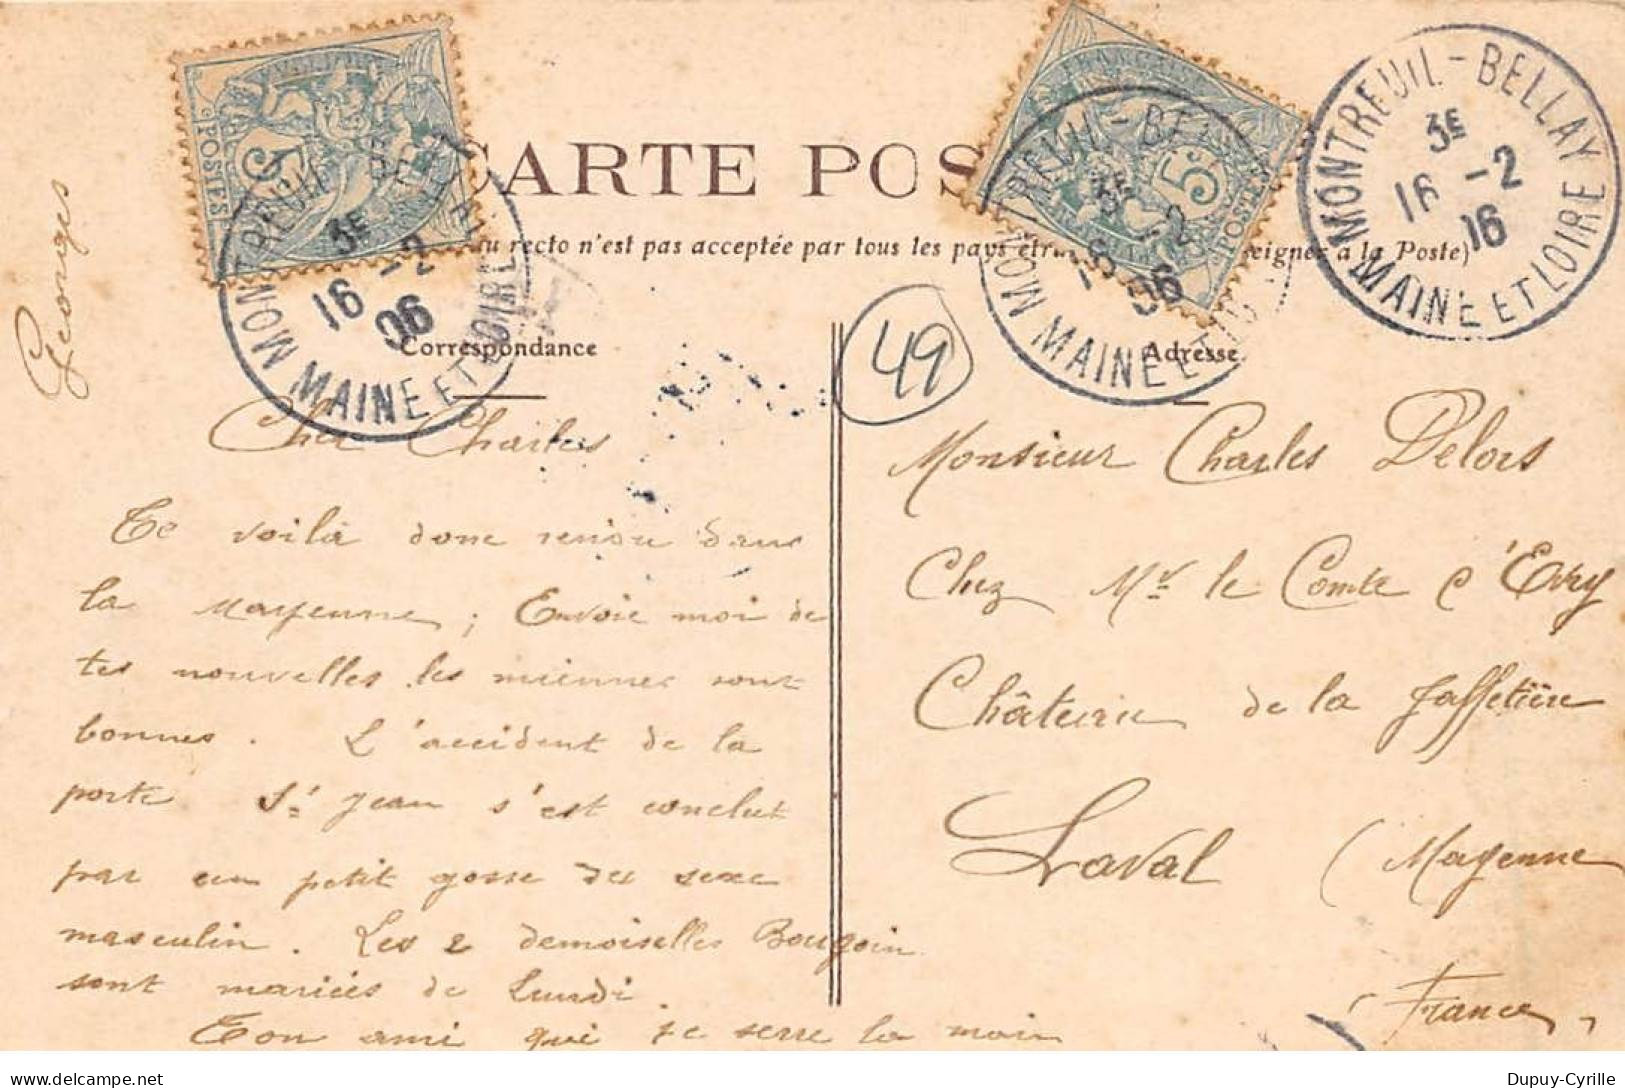 CARTE POS
au recto n'est pas acceptée par tous les pays étr
à la Poste)
MONTREUIL-BELLAY
3E
16 -2
06
MAINE ET LOIRE
MONTREUIL-BE
3E
16 -2
06
MAINE ET LO
MONTREUIL-BELLAY
3E
16 -2
16
MAINE ET LOIRE
5
POSTES
5
POSTES
49
Georges
Correspondance
Cher Charles
Te voilà donc rendu dans
la Mayenne ; Envoie moi de
tes nouvelles les miennes sont
bonnes. L'accident de la
porte St Jean s'est conclut
par un petit gosse du sexe
masculin. Les 2 demoiselles Bougoin
sont mariées de Lundi.
Ton ami qui te serre la main
Adresse
Monsieur Charles Delors
Chez Mr le Comte d'Evry
Château de la
Laval (Mayenne
(France)
www.delcampe.net
Dupuy-Cyrille